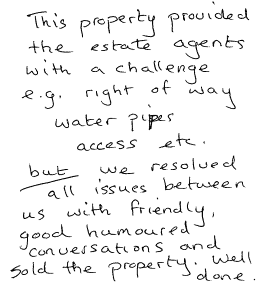 This property provided
the estate agents
with a challenge
e.g. right of way
water pipes
access etc.
but we resolved
all issues between
us with friendly,
good humoured
conversations and
sold the property. Well
done.